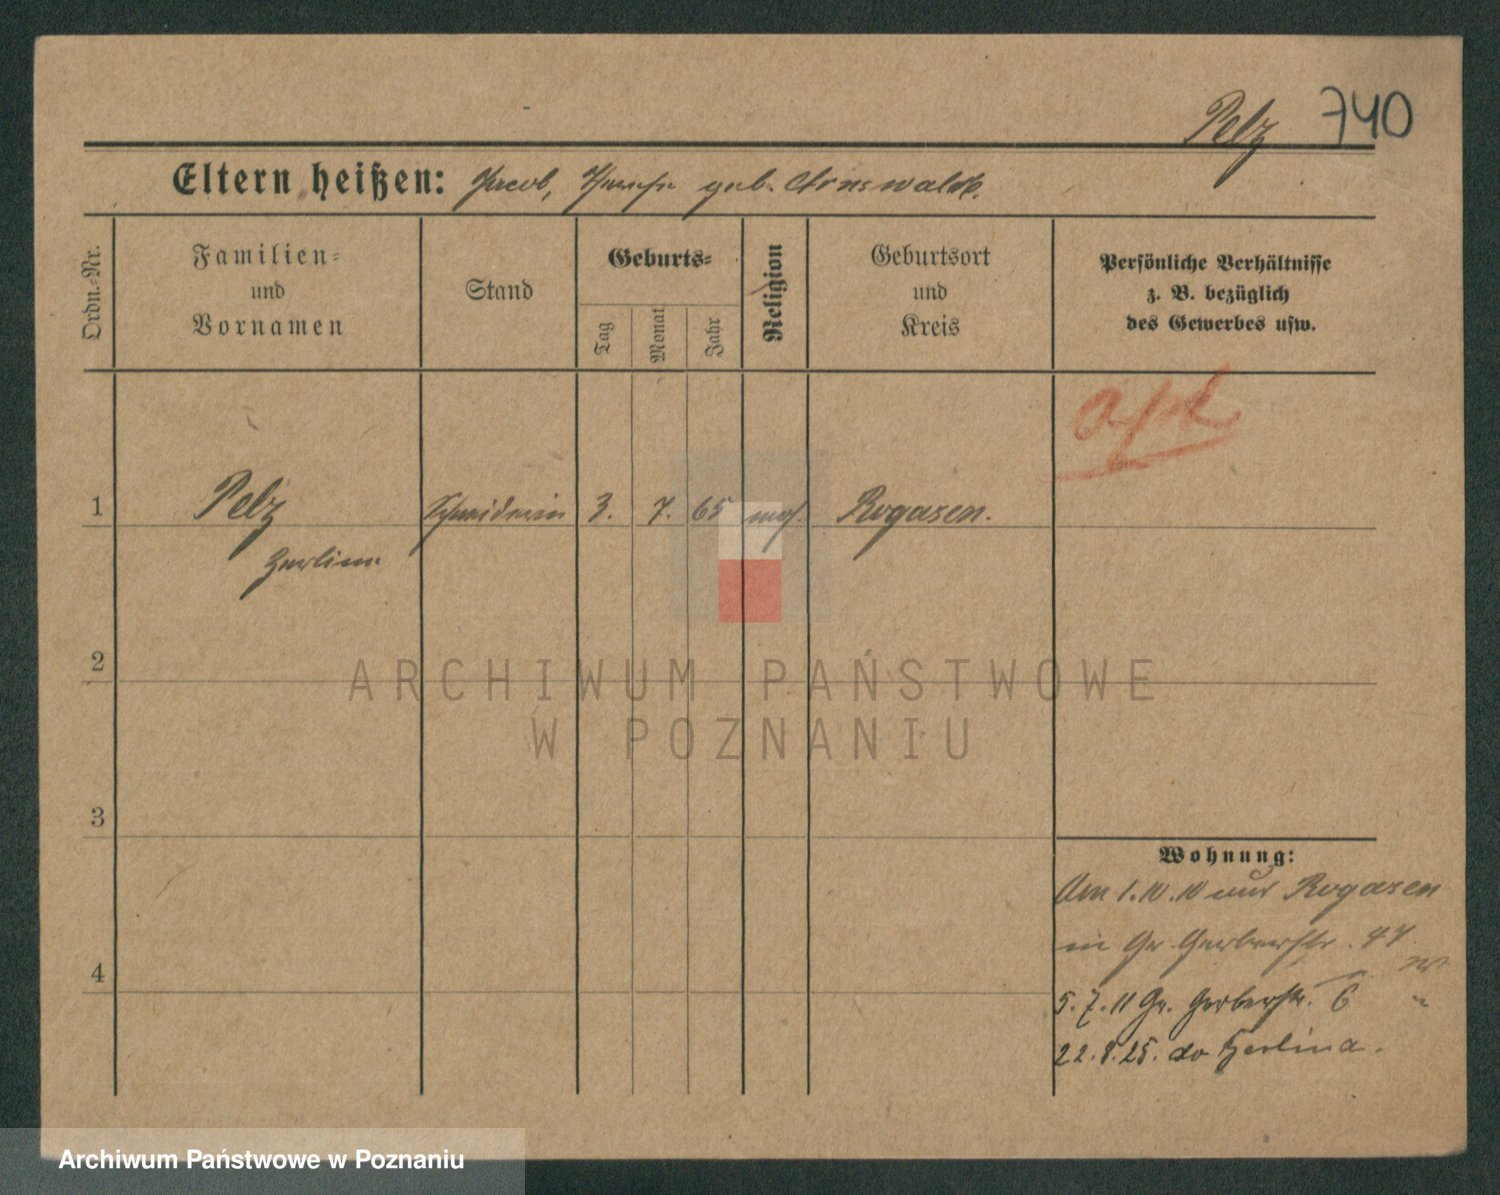 Pelz 740
Eltern heißen: Jacob, geb. Arnswalde.
Ordn.-Nr.
Familien-
und
Vornamen
Stand
Geburts-
Tag
Monat
Jahr
Religion
Geburtsort
und
Kreis
Persönliche Verhältnisse
z. B. bezüglich
des Gewerbes usw.
1 Pelz Schneiderin 3. 7. 65 mos. Rogasen.
2
3
4
Wohnung:
Am 1.10.10 aus Rogasen
in Gr. Gerberstr. 47.
5.7.11 Gr. Gerberstr. 6
22.8.25. do Berlina.
ARCHIWUM PAŃSTWOWE
W POZNANIU
Archiwum Państwowe w Poznaniu